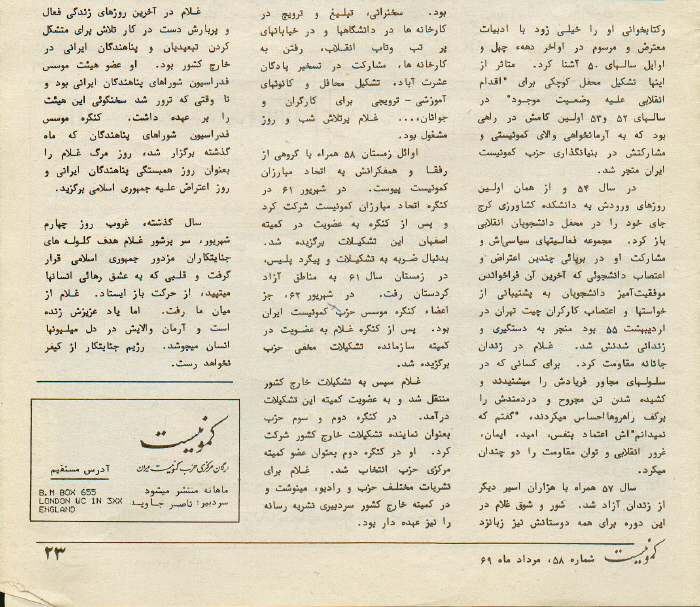 وکتابخوانی او را خیلی زود با ادبیات
معترض و مرسوم در اواخر دهه چهل و
اوایل سالهای ۵۰ آشنا کرد. متاثر از
اینها تشکیل محفل کوچکی برای "اقدام
انقلابی علیه وضعیت موجود" در
سالهای ۵۲ و۵۳ اولین گامش در راهی
بود که به آرمانخواهی والای کمونیستی و
مشارکتش در بنیانگذاری حزب کمونیست
ایران منجر شد.
در سال ۵۴ و از همان اولین
روزهای ورودش به دانشکده کشاورزی کرج
جای خود را در محفل دانشجویان انقلابی
باز کرد. مجموعه فعالیتهای سیاسی‌اش و
مشارکت او در برپائی چندین اعتراض و
اعتصاب دانشجوئی که آخرین آن فراخواندن
موفقیت‌آمیز دانشجویان به پشتیبانی از
خواستها و اعتصاب کارگران چیت تهران در
اردیبهشت ۵۵ بود منجر به دستگیری و
زندانی شدنش شد. غلام در زندان
جانانه مقاومت کرد. برای کسانی که در
سلولهای مجاور فریادش را میشنیدند و
کشیده شدن تن مجروح و دردمندش را
برکف راهروها احساس میکردند، "گفتم که
نمیدانم"اش اعتماد بنفس، امید، ایمان،
غرور انقلابی و توان مقاومت را دو چندان
میکرد.
سال ۵۷ همراه با هزاران اسیر دیگر
از زندان آزاد شد. شور و شوق غلام در
این دوره برای همه دوستانش نیز زبانزد
بود. سخنرانی، تبلیغ و ترویج در
کارخانه ها در دانشگاهها و در خیابانهای
پر تب وتاب انقلاب، رفتن به
کارخانه ها، مشارکت در تسخیر پادگان
عشرت آباد، تشکیل محافل و کانونهای
آموزشی - ترویجی برای کارگران و
جوانان،... غلام پرتلاش شب و روز
مشغول بود.
اوائل زمستان ۵۸ همراه با گروهی از
رفقا و همفکرانش به اتحاد مبارزان
کمونیست پیوست. در شهریور ۶۱ در
کنگره اتحاد مبارزان کمونیست شرکت کرد
و پس از کنگره به عضویت در کمیته
اصفهان این تشکیلات برگزیده شد.
بدنبال ضربه به تشکیلات و پیگرد پلیس،
در زمستان سال ۶۱ به مناطق آزاد
کردستان رفت. در شهریور ۶۲، جز
اعضاء کنگره موسس حزب کمونیست ایران
بود. پس از کنگره غلام به عضویت در
کمیته سازمانده تشکیلات مخفی حزب
برگزیده شد.
غلام سپس به تشکیلات خارج کشور
منتقل شد و به عضویت کمیته این تشکیلات
درآمد. در کنگره دوم و سوم حزب
بعنوان نماینده تشکیلات خارج کشور شرکت
کرد. او در کنگره دوم بعنوان عضو کمیته
مرکزی حزب انتخاب شد. غلام برای
نشریات مختلف حزب و رادیو، مینوشت و
در کمیته خارج کشور سردبیری نشریه رسانه
را نیز عهده دار بود.
غلام در آخرین روزهای زندگی فعال
و پربارش دست در کار تلاش برای متشکل
کردن تبعیدیان و پناهندگان ایرانی در
خارج کشور بود. او عضو هیئت موسس
فدراسیون شوراهای پناهندگان ایرانی بود و
تا وقتی که ترور شد سخنگوئی این هیئت
را بر عهده داشت. کنگره موسس
فدراسیون شوراهای پناهندگان که ماه
گذشته برگزار شد، روز مرگ غلام را
بعنوان روز همبستگی پناهندگان ایرانی و
روز اعتراض علیه جمهوری اسلامی برگزید.
سال گذشته، غروب روز چهارم
شهریور، سر پرشور غلام هدف گلوله های
جنایتکاران مزدور جمهوری اسلامی قرار
گرفت و قلبی که به عشق رهائی انسانها
میتپید، از حرکت باز ایستاد. غلام از
میان ما رفت. اما یاد عزیزش زنده
است و آرمان والایش در دل میلیونها
انسان میجوشد. رژیم جنایتکار از کیفر
نخواهد رست.
کمونیست
ارگان مرکزی حزب کمونیست ایران
ماهانه منتشر میشود
سردبیر: ناصر جاوید
آدرس مستقیم
B.M BOX 655
LONDON WC 1N 3XX
ENGLAND
کمونیست شماره ۵۸، مرداد ماه ۶۹
۲۳